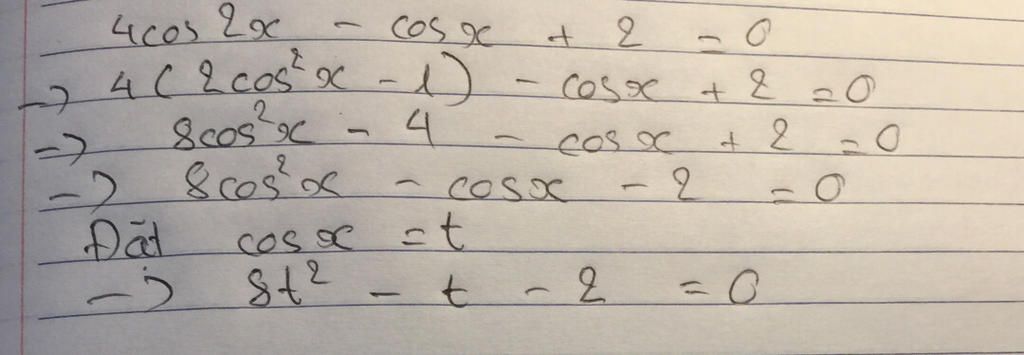 4cos2x - cosx + 2 = 0
-> 4(2cos²x - 1) - cosx + 2 = 0
-> 8cos²x - 4 - cosx + 2 = 0
-> 8cos²x - cosx - 2 = 0
Đặt cosx = t
-> 8t² - t - 2 = 0